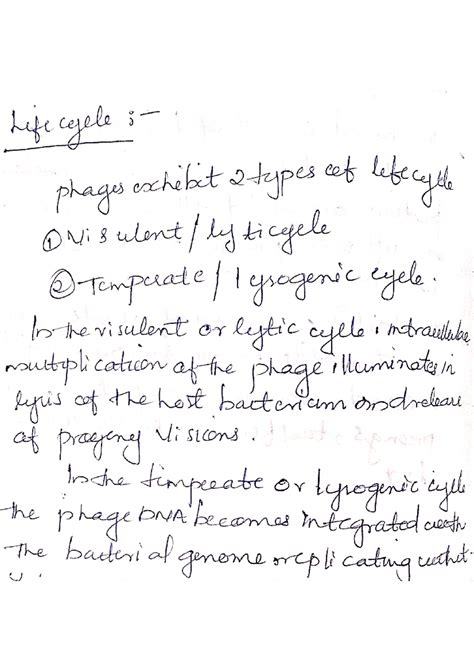 Life cycle :-
phages exhibit 2 types of life cycle
① Virulent / lytic cycle
② Temperate / lysogenic cycle.
In the virulent or lytic cycle, intracellular
multiplication of the phage illuminates in
lysis of the host bacterium and release
of progeny virions.
In the temperate or lysogenic cycle
the phage DNA becomes integrated with
The bacterial genome replicating with it.